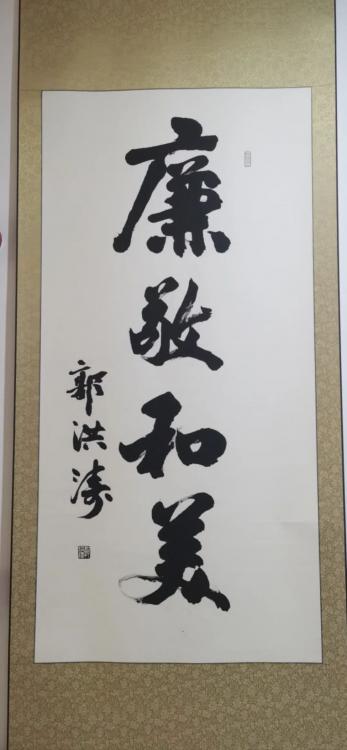 廉敬和美
郭洪涛